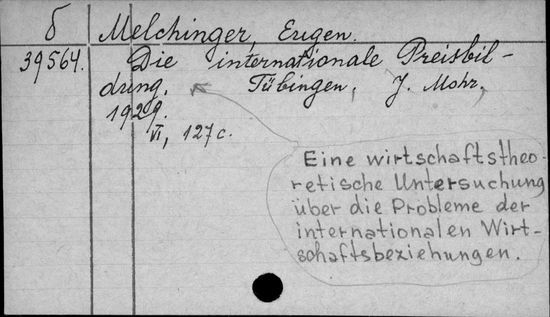 б Melchinger, Eugen.
39564. Die internationale Preisbil-
dung. Tübingen, J. Mohr.
1929.
VI, 127 c.
Eine wirtschaftstheo-
retische Untersuchung
über die Probleme der
internationalen Wirt-
schaftsbeziehungen.